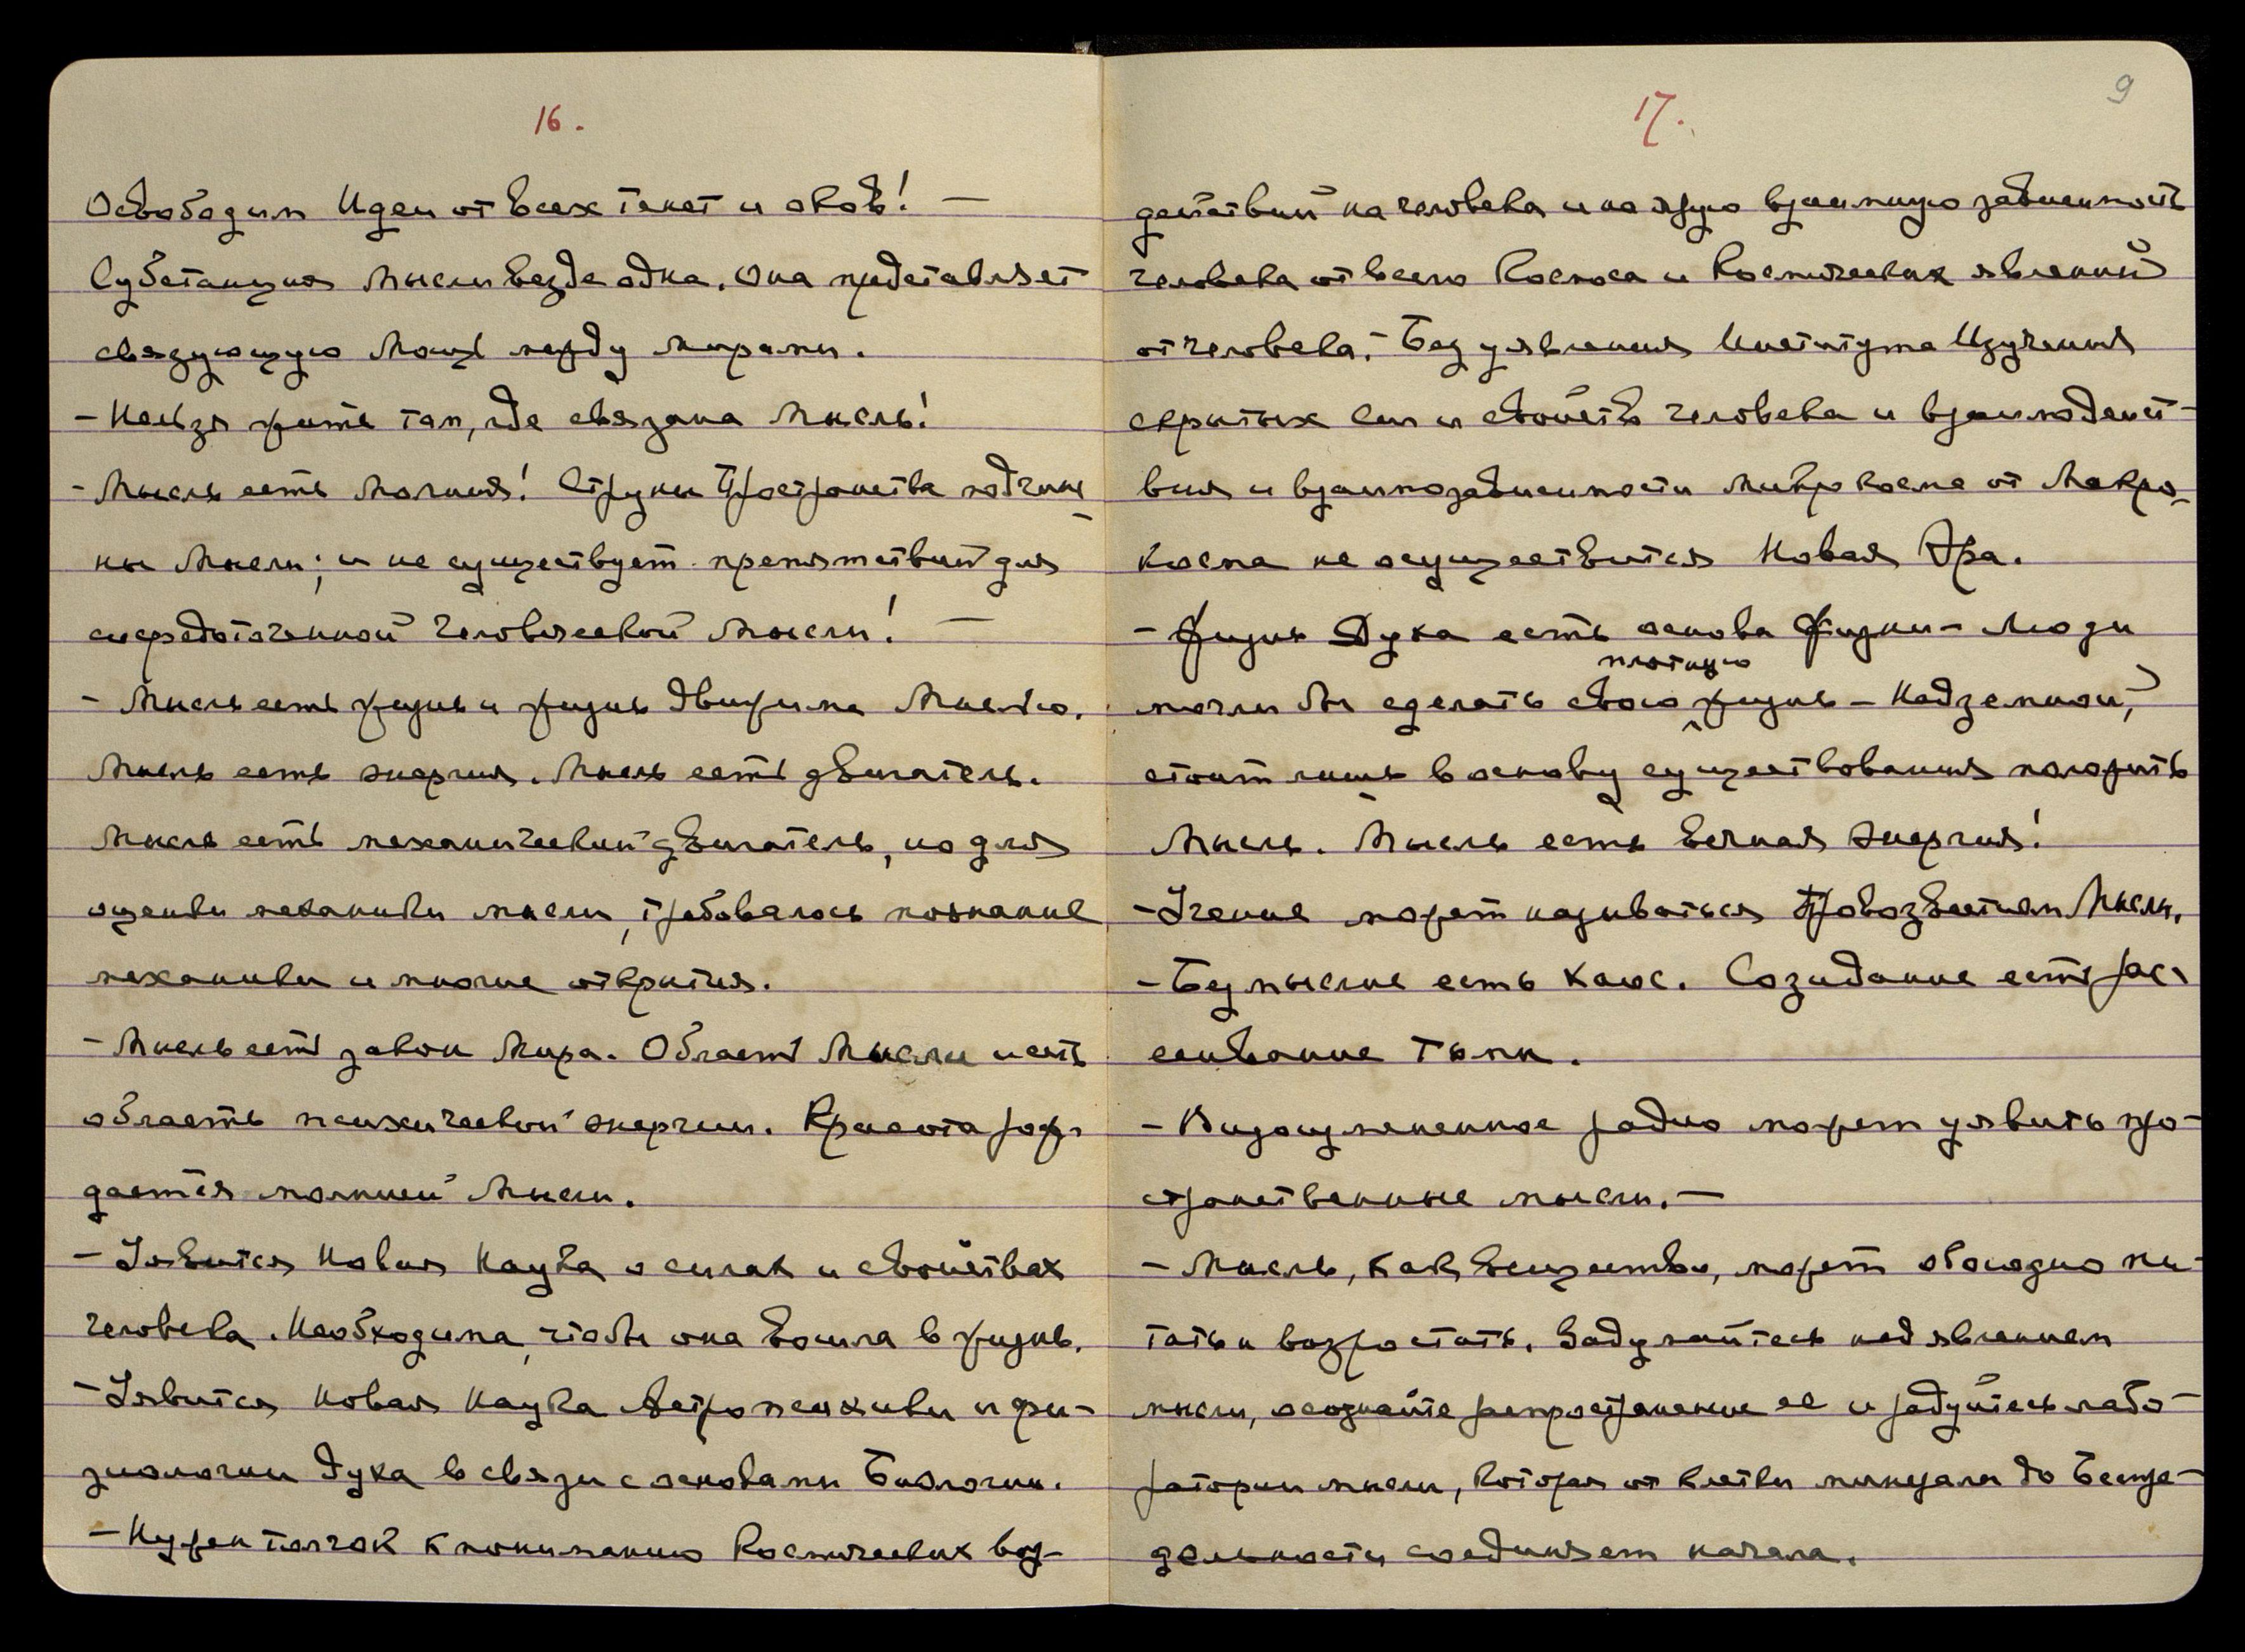 16.
Освободим Идеи от всех тенет и оков! —
Субстанция Мысли везде одна. Она представляет
связующую Мощь между мирами.
- Нельзя жить там, где связана Мысль!
- Мысль есть Молния! Струны Пространства подчине-
ны Мысли; и не существует препятствий для
сосредоточенной Человеческой Мысли! —
- Мысль есть жизнь и жизнь движима Мыслью.
Мысль есть энергия. Мысль есть двигатель.
Мысль есть механический двигатель, но для
оценки механики мысли, требовалось познание
механики и многие открытия.
- Мысль есть закон Мира. Область Мысли и есть
область психической энергии. Красота рож-
дается молнией Мысли.
- Явится Новая Наука о силах и свойствах
человека. Необходимо, чтобы она вошла в жизнь.
- Явится Новая Наука Астрохимии и фи-
зиологии духа в связи с основами Биологии.
- Нужен толчок к пониманию Космических воз-
9
17.
действий на человека и на ярую взаимную зависимость
человека от всего Космоса и Космических явлений
от человека. - Без уявления Института Изучения
скрытых сил и свойств человека и взаимодейст-
вия и взаимозависимости микрокосма от Макро-
косма не осуществится Новая Эра.
- Жизнь Духа есть основа Жизни - Люди
плотную
могли бы сделать свою жизнь - Надземной,
стоит лишь в основу существования положить
Мысль. Мысль есть Вечная Энергия!
- Учение может называться Провозвестием Мысли.
- Безмыслие есть хаос. Созидание есть рас-
сеивание тьмы.
- Видоизмененное радио может уявить про-
странственные мысли. —
- Мысль, как вещество, может обоюдно пи-
тать и возростать. Задумайтесь над явлением
мысли, осознайте распространение ее и радуйтесь лабо-
ратории мысли, которая от клетки минерала до Беспре-
дельности соединяет начала.